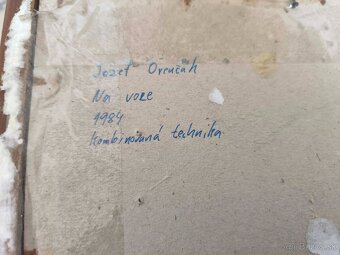 Jozef Orenčák
Na voze
1984
Kombinovaná technika